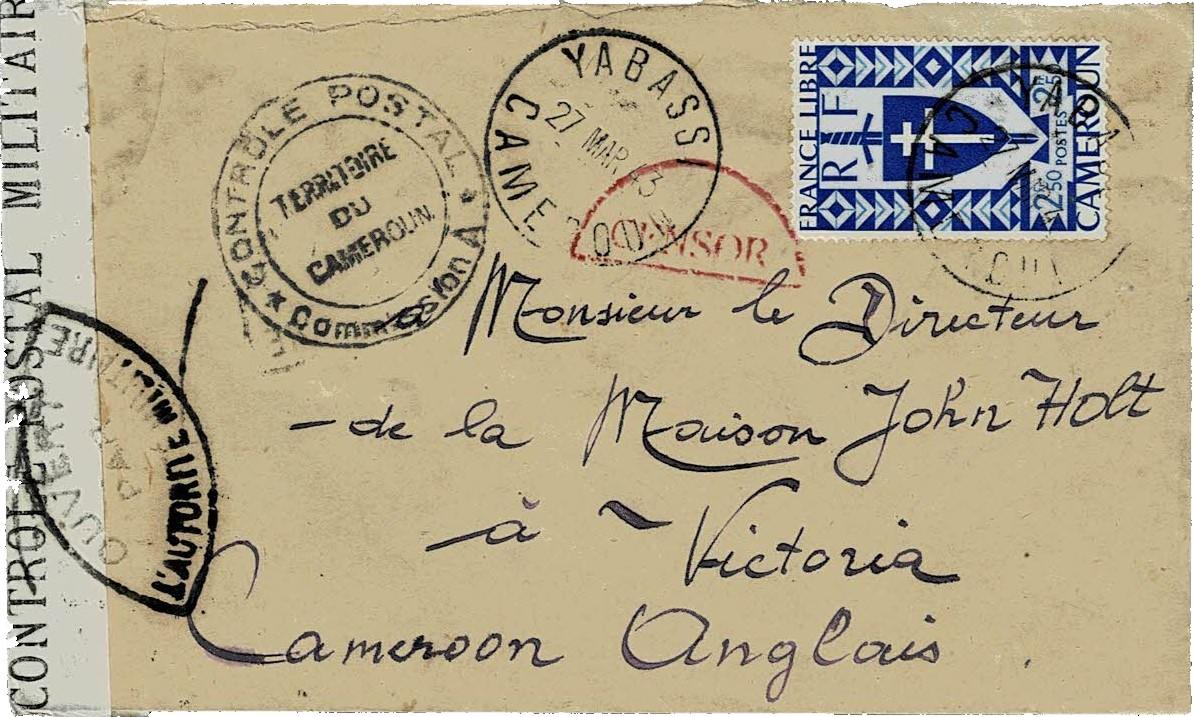 CONTROLE POSTAL MILITAIR
OUVERT
PAR
L'AUTORITE MILITAIRE
CONTRÔLE POSTAL
TERRITOIRE
DU
CAMEROUN
Commission A
YABASSI
27 MAR
CAMEROUN
CENSOR
FRANCE LIBRE
RF
2F50 POSTES 2F50
CAMEROUN
à Monsieur le Directeur
de la Maison John Holt
à Victoria
Cameroon Anglais